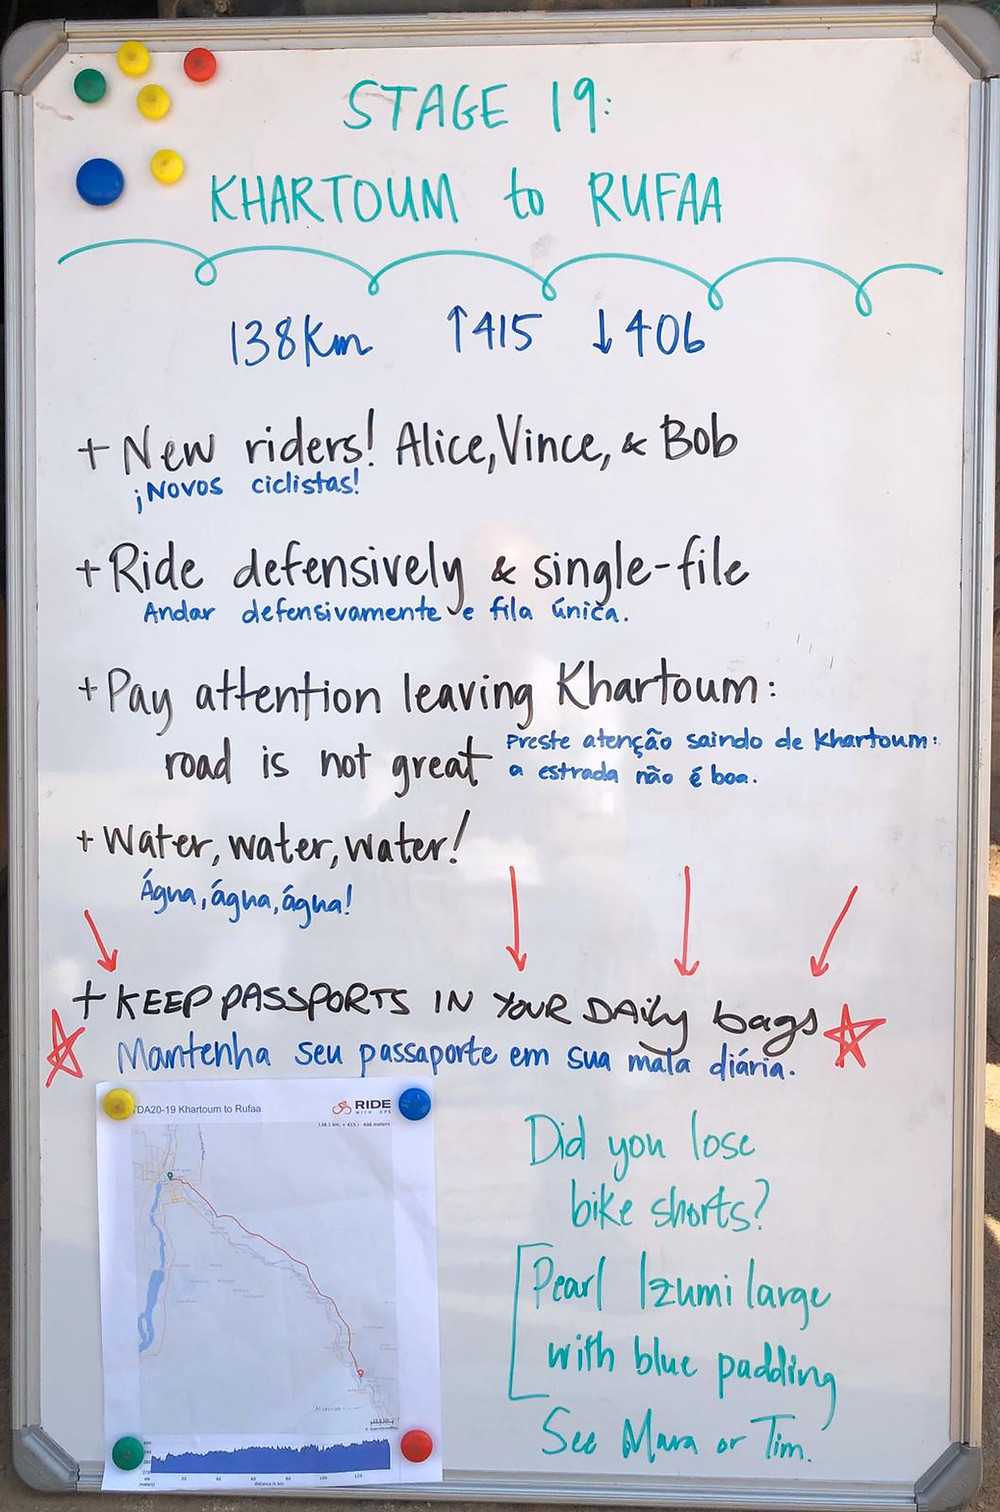 STAGE 19:
KHARTOUM to RUFAA
138Km ↑415 ↓406
+ New riders! Alice, Vince, & Bob
¡Novos ciclistas!
+ Ride defensively & single-file
Andar defensivamente e fila única.
+ Pay attention leaving Khartoum:
road is not great
Preste atenção saindo de Khartoum:
a estrada não é boa.
+ Water, water, water!
Água, água, água!
+ KEEP PASSPORTS IN YOUR DAily bags
Mantenha seu passaporte em sua mala diária.
TDA20-19 Khartoum to Rufaa
RIDE
WITH GPS
138.1 km, + 415 / - 406 meters
20 40 60 80 100 120
distance in km
Did you lose
bike shorts?
Pearl Izumi large
with blue padding
See Mara or Tim.